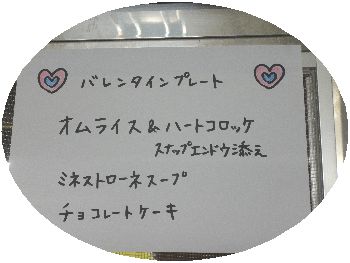 バレンタインプレート
オムライス&ハートコロッケ
スナップエンドウ添え
ミネストローネスープ
チョコレートケーキ